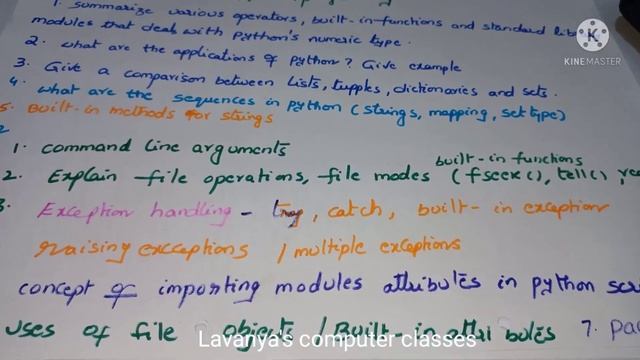 1. summarize various operators, built-in-functions and standard
modules that deal with Python's numeric type.
2. what are the applications of Python? Give example
3. Give a comparison between Lists, tupples, dictionaries and sets.
4. what are the sequences in python (strings, mapping, set type)
5. Built-in methods for strings
1. command line arguments
built-in functions
2. Explain file operations, file modes (fseek(), tell(),
3. Exception handling - try, catch, built-in exception
raising exceptions / multiple exceptions
concept of importing modules attributes in python
uses of file objects / Built-in attributes 7.
Lavanya's computer classes
K
KINEMASTER